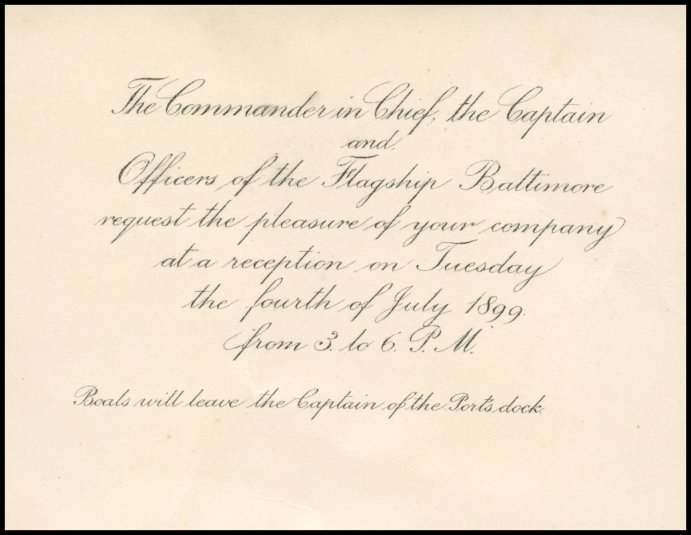 The Commander in Chief, the Captain
and
Officers of the Flagship Baltimore
request the pleasure of your company
at a reception on Tuesday
the fourth of July 1899
from 3 to 6 P. M.
Boats will leave the Captain of the Port's dock